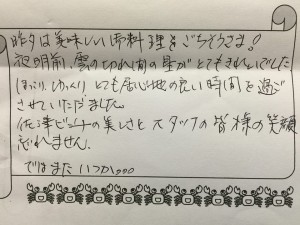 昨夕は美味しいお料理をごちそうさま!
夜明前、雲の切れ間の星がとてもきれいでした
ほっこり、ゆっくり とても居心地の良い時間を過ご
させていただきました。
佐津ビューナの美しさと スタッフの皆様の笑顔
忘れません。
ではまた いつか。。。